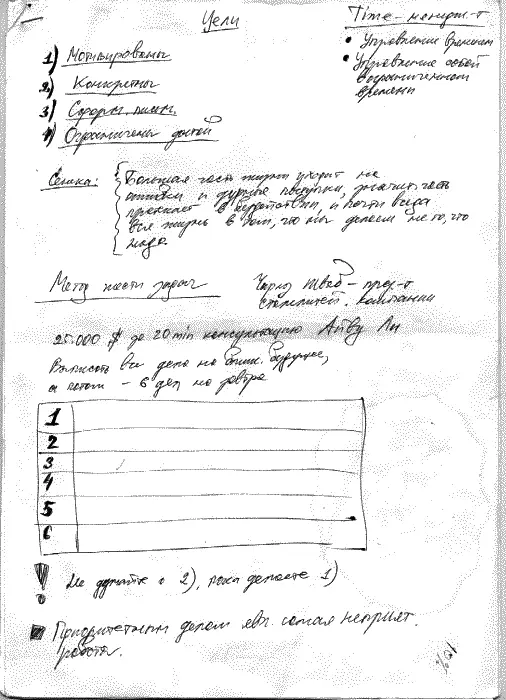 Цели
Time-менеджм-т
• Управление временем
• Управление собой
в ограниченном
времени
1) Мотивированы
2) Конкретны
3) Сформ. письм.
4) Ограничены датой
Сенека: Большая часть жизни уходит на
ошибки и дурные поступки, значит. часть
протекает в бездействии, и почти всегда
вся жизнь в том, что мы делаем не то, что
надо
Метод шести задач
Чарлз Шваб - през-т
сталелитей. компании
25.000 $ за 20 min консультацию Айву Ли
Выписать все дела на ближ. будущее,
а потом - 6 дел на завтра
1
2
3
4
5
6
! Не думайте о 2), пока делаете 1)
Приоритетным делом явл. самая неприят.
работа.